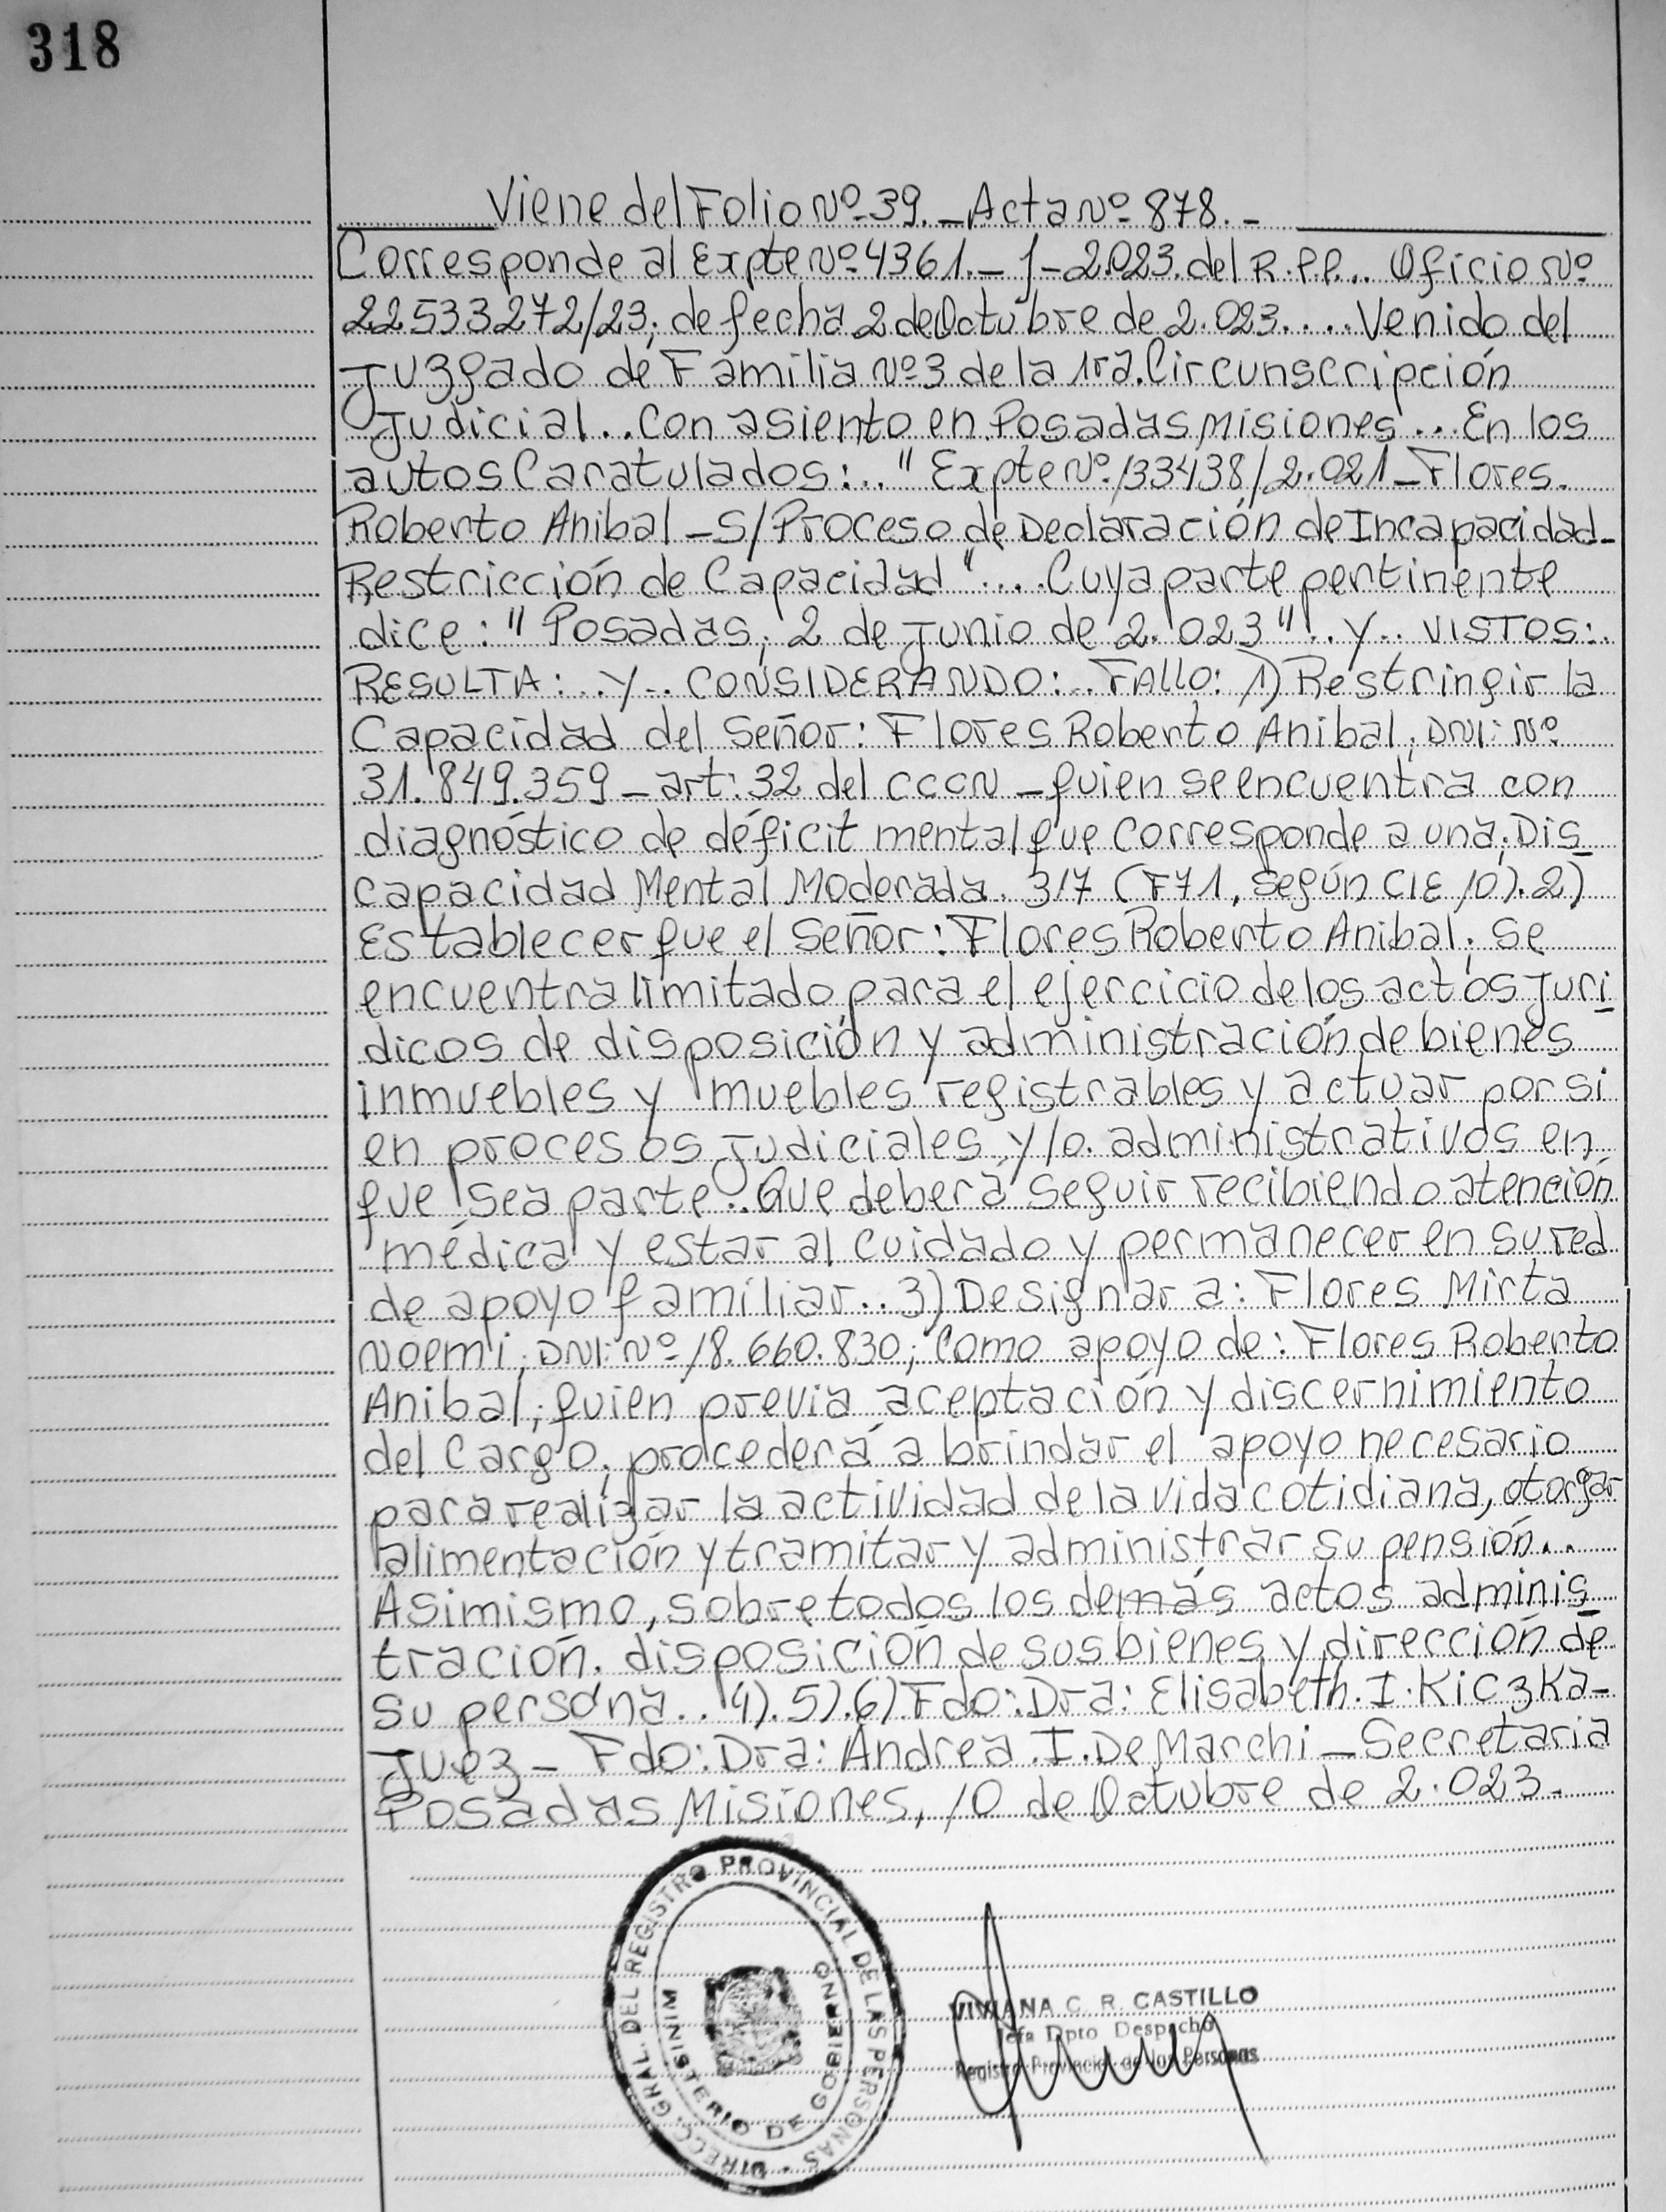 318
Viene del Folio Nº 39. - Acta Nº 878. -
Corresponde al Expte Nº 4361. - J - 2.023. del R.P.P... Oficio Nº
22533272/23; de fecha 2 de Octubre de 2.023.... Venido del
Juzgado de Familia Nº 3 de la 1ra. Circunscripción
Judicial.. Con asiento en Posadas Misiones... En los
autos Caratulados:.. "Expte Nº 133438/2.021 - Flores.
Roberto Anibal - S/Proceso de Declaración de Incapacidad -
Restricción de Capacidad".... Cuya parte pertinente
dice: "Posadas, 2 de Junio de 2.023".. y.. VISTOS:.
RESULTA:.. y.. CONSIDERANDO:.. FALLO: 1) Restringir la
Capacidad del Señor: Flores Roberto Anibal; DNI: Nº
31.849.359 - art: 32 del CCCN - quien se encuentra con
diagnóstico de déficit mental que corresponde a una; Dis
capacidad Mental Moderada. 317 (F71, según CIE 10). 2)
Establecer que el Señor: Flores Roberto Anibal; se
encuentra limitado para el ejercicio de los actos juri
dicos de disposición y administración de bienes
inmuebles y muebles registrables y actuar por si
en procesos judiciales y/o. administrativos en
que sea parte.. Que deberá seguir recibiendo atención
médica y estar al cuidado y permanecer en su red
de apoyo familiar.. 3) Designar a: Flores Mirta
Noemi; DNI: Nº 18.660.830; Como apoyo de: Flores Roberto
Anibal; quien previa aceptación y discernimiento
del Cargo; procederá a brindar el apoyo necesario
para realizar la actividad de la vida cotidiana, otorgar
alimentación y tramitar y administrar su pensión..
Asimismo, sobre todos los demás actos adminis
tración. disposición de sus bienes y dirección de
su persona.. 4). 5). 6) Fdo: Dra: Elisabeth. I. Kiczka -
Juez - Fdo: Dra: Andrea. I. De Marchi - Secretaria
Posadas Misiones, 10 de Octubre de 2.023.
DIRECC. GRAL. DEL REGISTRO PROVINCIAL DE LAS PERSONAS
MINISTERIO DE GOBIERNO
VIVIANA C. R. CASTILLO
Jefa Dpto Despacho
Registro Provincial de las Personas